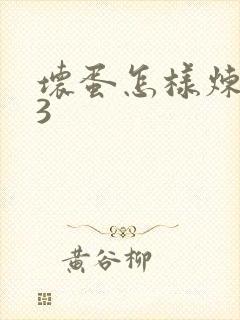 壞蛋怎樣煉
3
黃谷柳